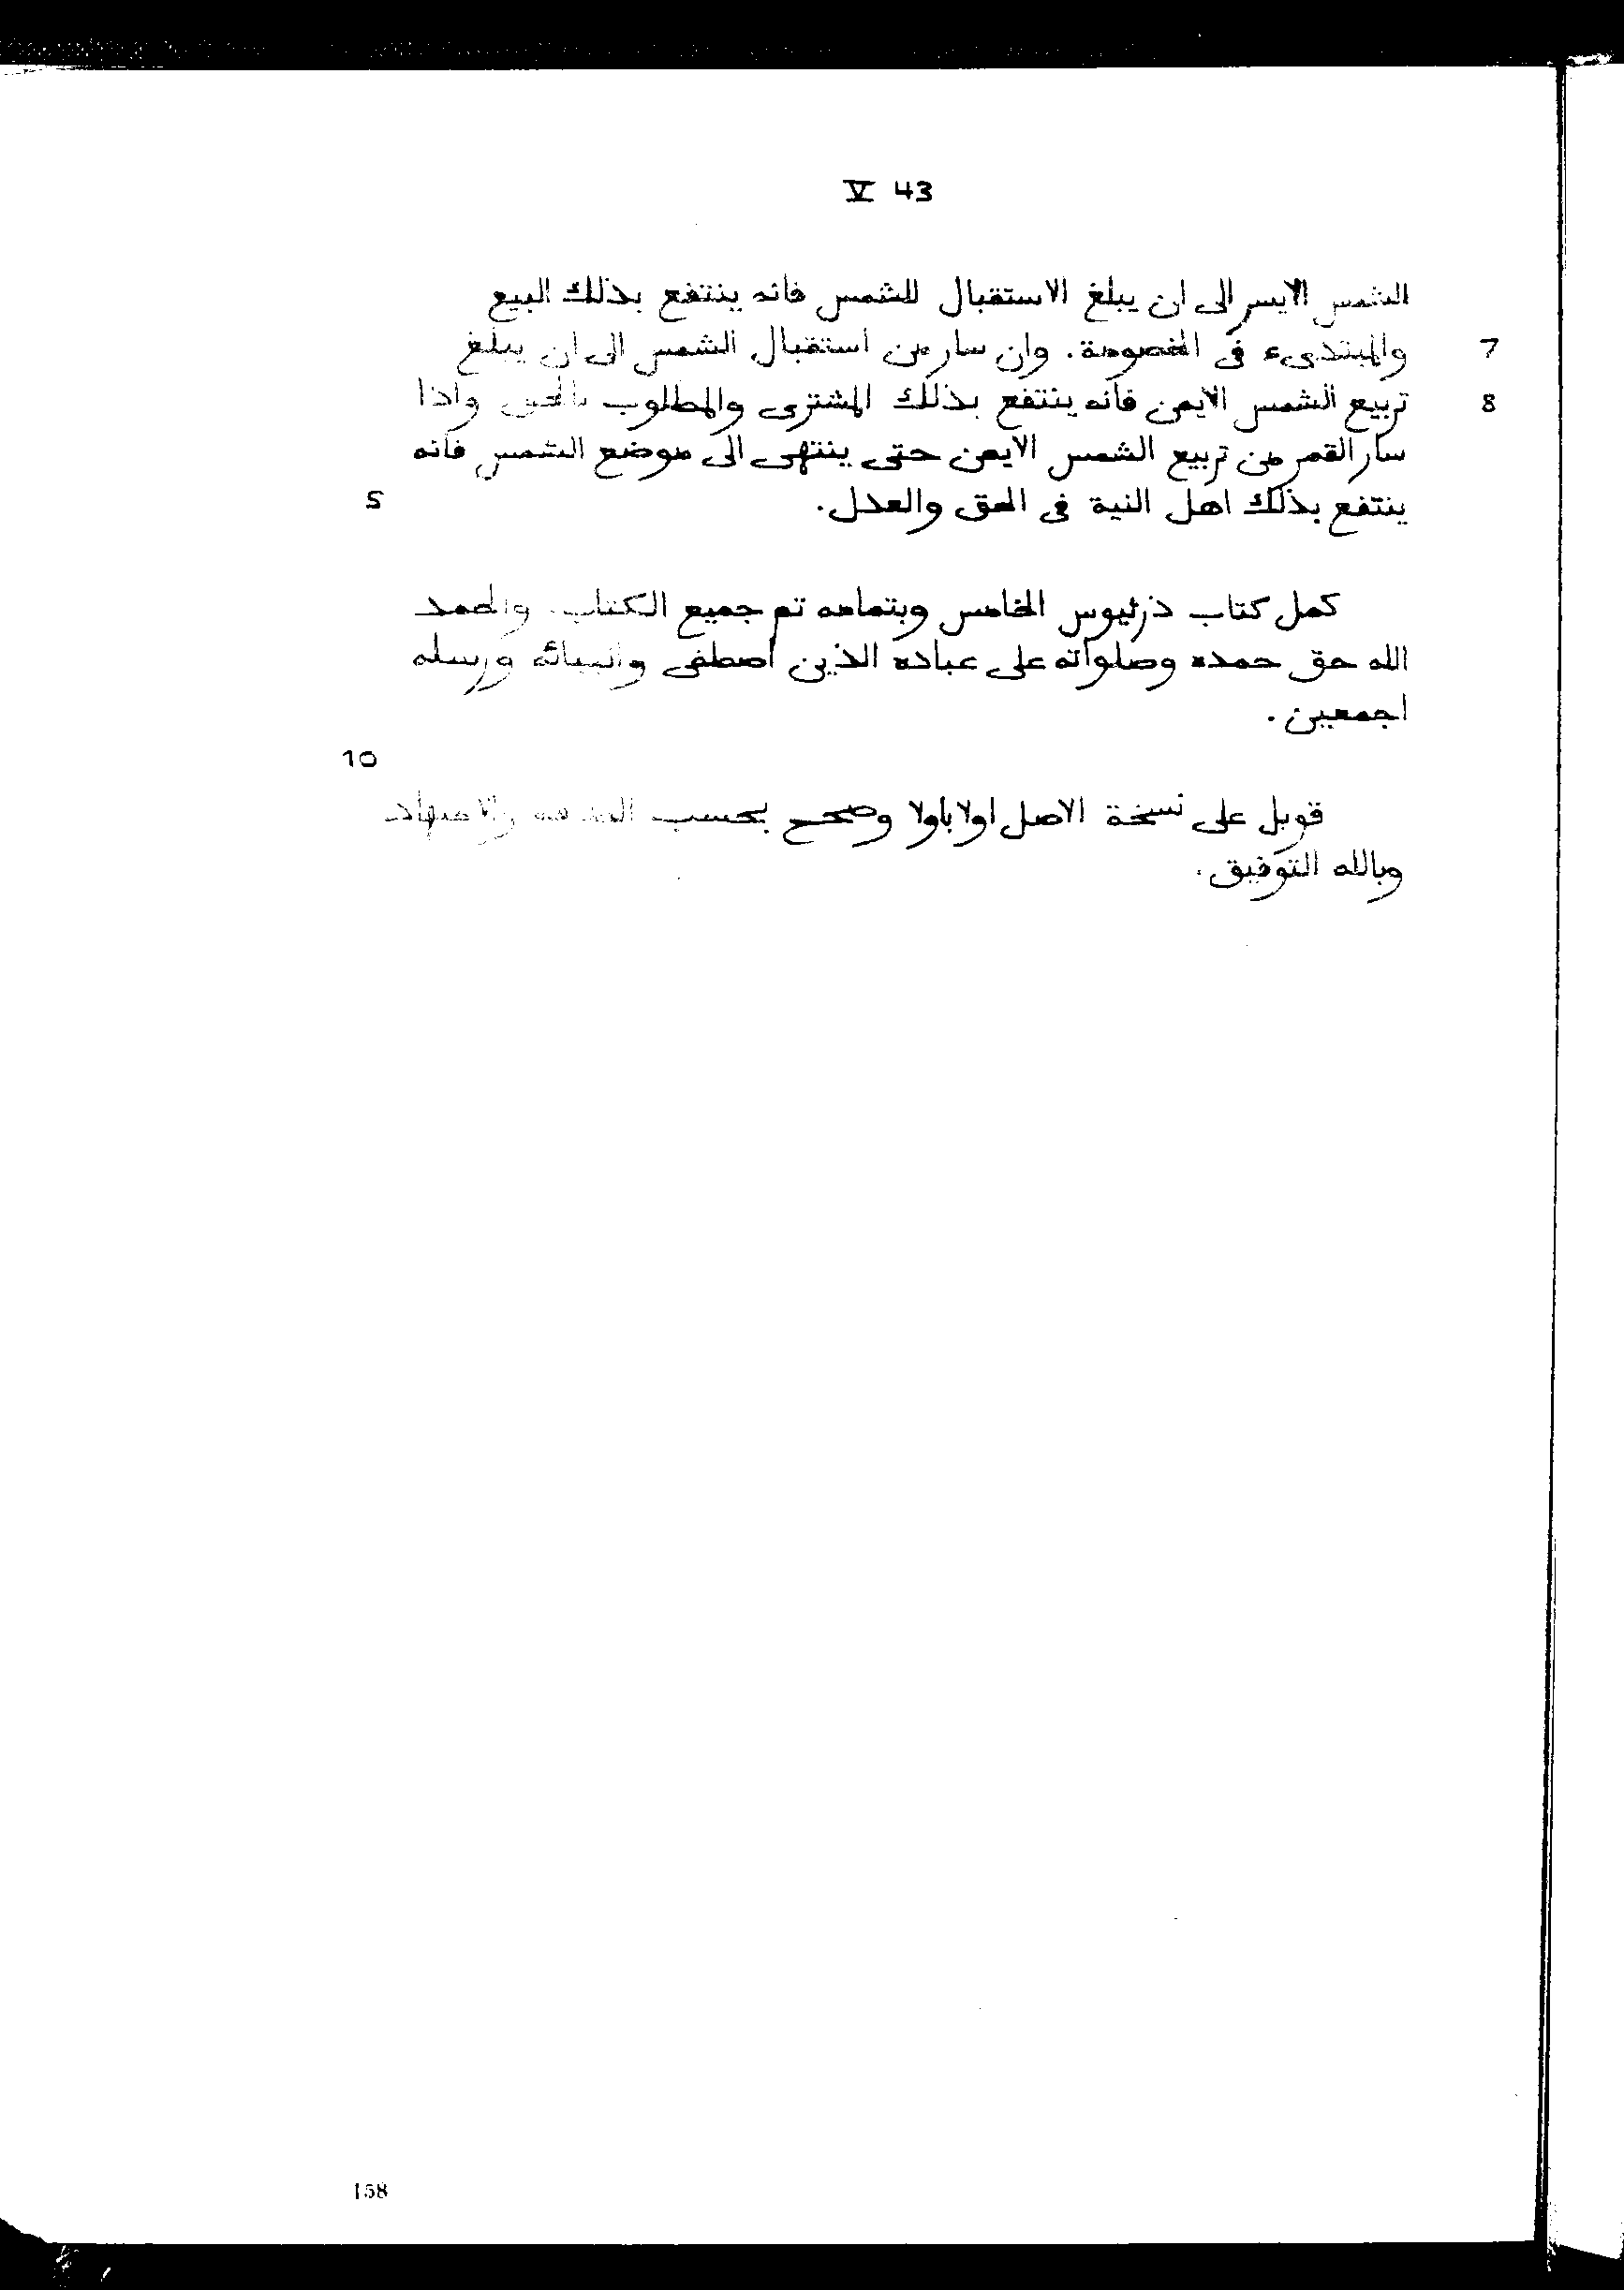 V 43
الشمس الايسر الى ان يبلغ الاستقبال للشمس فانه ينتفع بذلك البيع
7 والمبتدىء فى الخصومة. وان سار من استقبال الشمس الى ان يبلغ
8 تربيع الشمس الايمن فانه ينتفع بذلك المشترى والمطلوب بالحق واذا
سار القمر من تربيع الشمس الايمن حتى ينتهى الى موضع الشمس فانه
ينتفع بذلك اهل النية فى الحق والعدل. 5
كمل كتاب ذرثيوس الخامس وبتمامه تم جميع الكتاب. والحمد
الله حق حمده وصلواته على عباده الذين اصطفى وانبيائه ورسله
اجمعين.
10
قوبل على نسخة الاصل اولا باولا وصحح بحسب والاجتهاد
وبالله التوفيق.
158